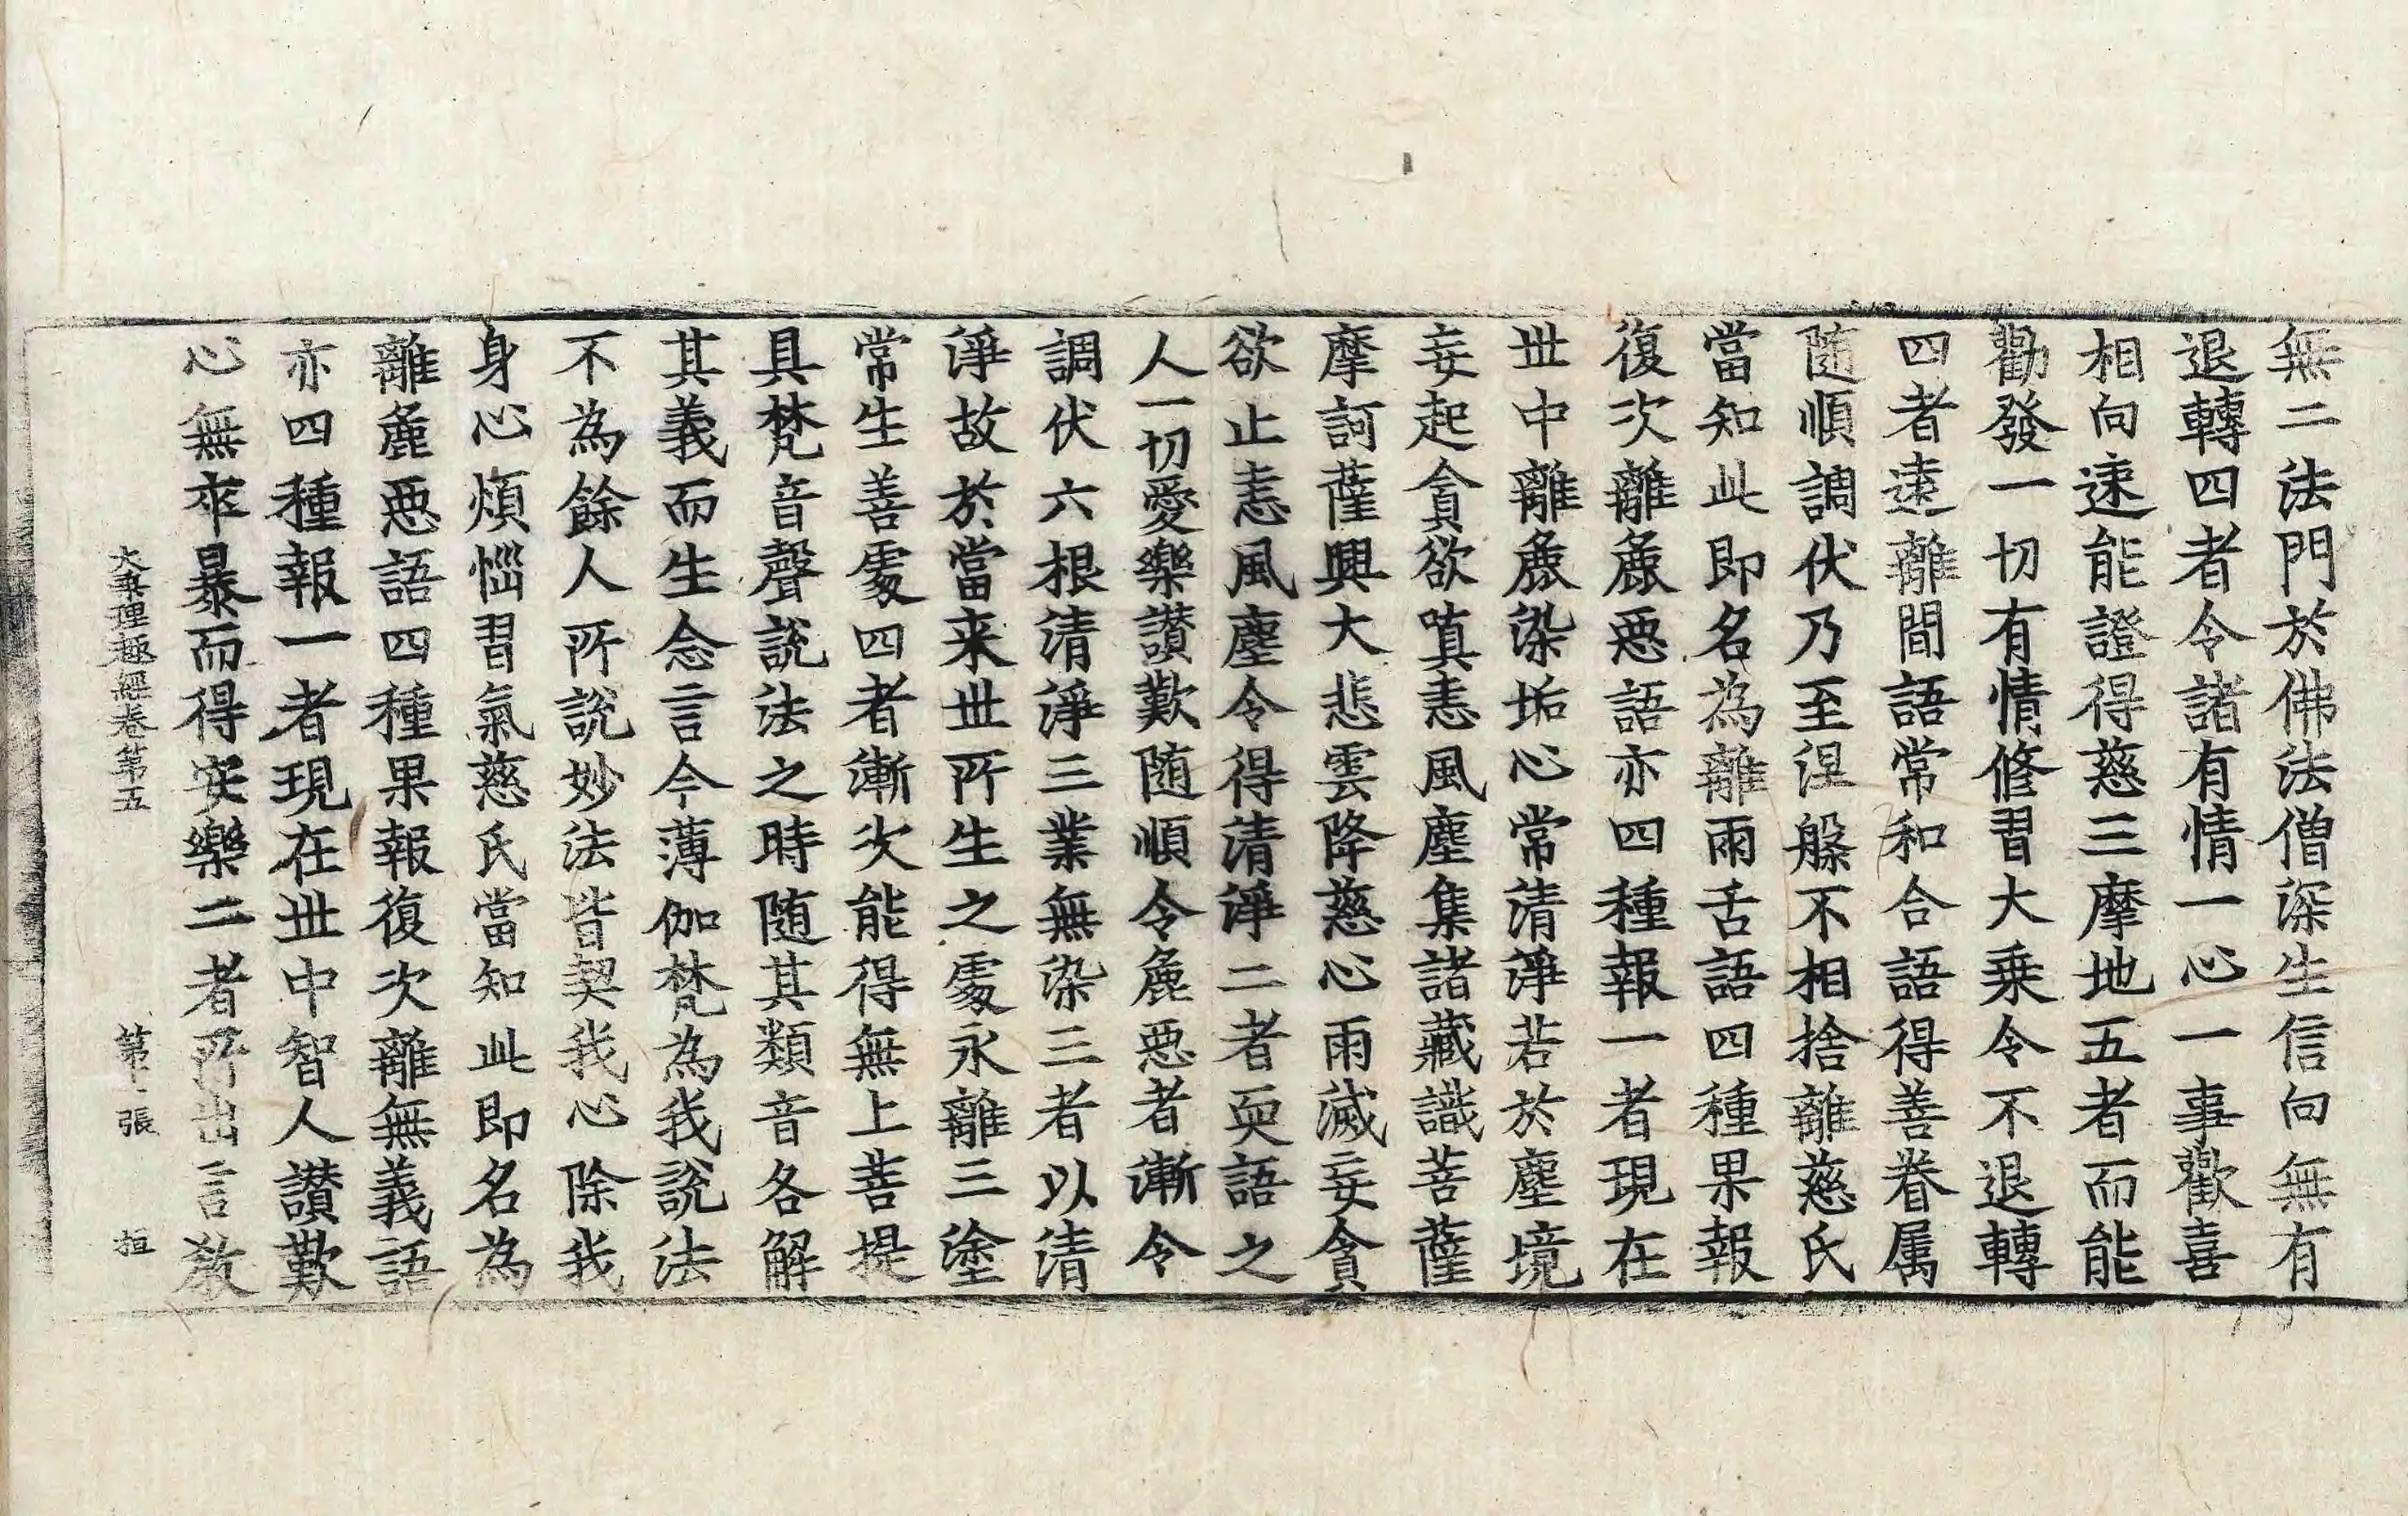 無二法門於佛法僧深生信向無有
退轉四者令諸有情一心一事歡喜
相向速能證得慈三摩地五者而能
勸發一切有情修習大乗令不退轉
四者遠離間語常和合語得善眷属
随順調伏乃至涅槃不相捨離慈氏
當知此即名為離兩舌語四種果報
復次離麁惡語亦四種報一者現在
世中離麁染垢心常清淨若於塵境
妄起貪欲嗔恚風塵集諸藏識菩薩
摩訶薩興大悲雲降慈心雨滅妄貪
欲止恚風塵令得清淨二者耎語之
人一切愛樂讃歎随順令麁惡者漸令
調伏六根清淨三業無染三者以清
淨故於當来世所生之處永離三塗
常生善處四者漸次能得無上菩提
具梵音聲說法之時随其類音各解
其義而生念言今薄伽梵為我說法
不為餘人所說妙法皆契我心除我
身心煩惱習氣慈氏當知此即名為
離麁惡語四種果報復次離無義語
亦四種報一者現在世中智人讃歎
心無卒暴而得安樂二者所出言教
大乗理趣經卷第五 第 張 桓